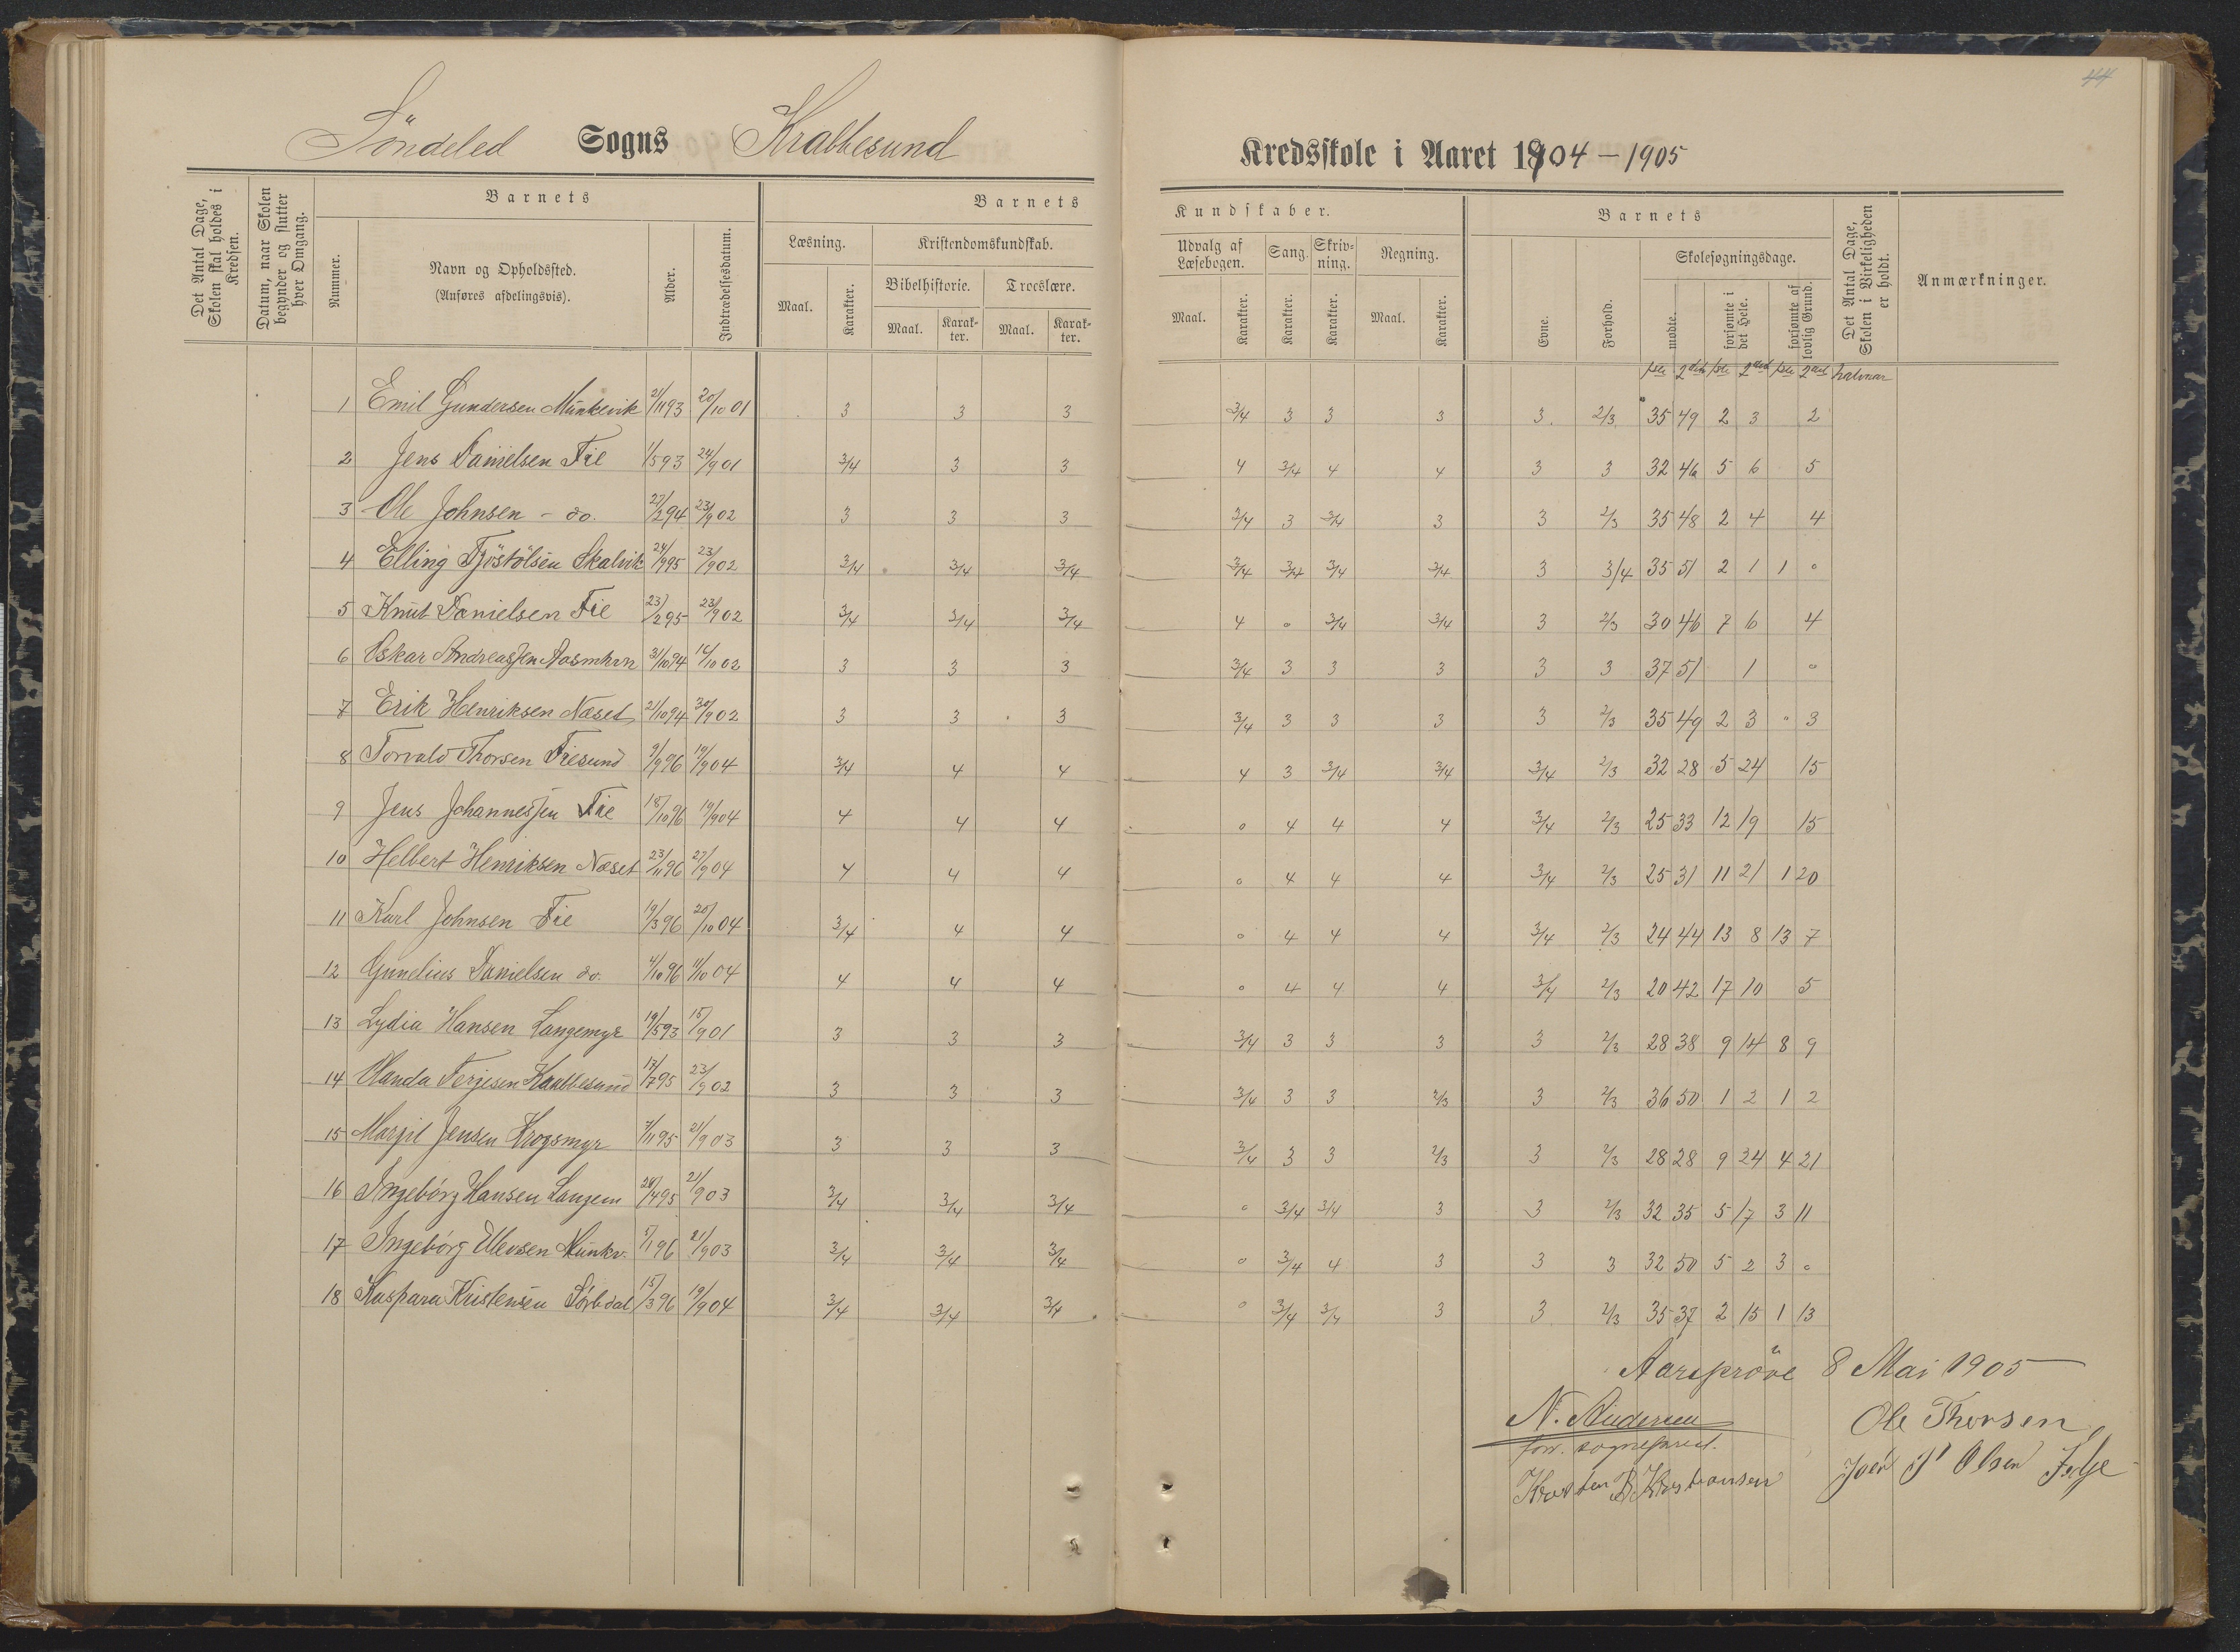 44
Söndeled Sogns Krabbesund Kredsskole i Aaret 1904 - 1905
Det Antal Dage, Skolen skal holdes i Kredsen.
Datum, naar Skolen begynder og slutter hver Omgang.
Barnets
Nummer.
Navn og Opholdssted.
(Anføres afdelingsvis).
Alder.
Indtrædelsesdatum.
Barnets
Læsning.
Maal.
Karakter.
Kristendomskundskab.
Bibelhistorie.
Maal.
Karakter.
Troeslære.
Maal.
Karakter.
Kundskaber.
Udvalg af Læsebogen.
Maal.
Karakter.
Sang.
Karakter.
Skrivning.
Karakter.
Regning.
Maal.
Karakter.
Barnets
Evne.
Forhold.
Skolesøgningsdage.
mødte.
forsømte i det Hele.
forsømte af lovlig Grund.
Det Antal Dage, Skolen i Virkeligheden er holdt.
Anmærkninger.
1ste 2det 1ste 2det 1ste 2det halvaar
1 Emil Gundersen Munkevik 21/11 93 20/10 01 3 3 3 3/4 3 3 3 3 2/3 35 49 2 3 2
2 Jens Danielsen Fie 1/5 93 24/9 01 3/4 3 3 4 3/4 4 4 3 3 32 46 5 6 5
3 Ole Johnsen - do. 27/2 94 23/9 02 3 3 3 3/4 3 3/4 3 3 2/3 35 48 2 4 4
4 Elling Tjöstölsen Skalvik 24/9 95 23/9 02 3/4 3/4 3/4 3/4 3/4 3/4 3/4 3 3/4 35 51 2 1 1 0
5 Knut Danielsen Fie 23/2 95 23/9 02 3/4 3/4 3/4 4 0 3/4 3/4 3 2/3 30 46 7 6 4
6 Oskar Andreassen 31/10 94 16/10 02 3 3 3 3/4 3 3 3 3 3 37 51 1 0
7 Erik Henriksen Næset 21/10 94 30/9 02 3 3 3 3/4 3 3 3 3 2/3 35 49 2 3 0 3
8 Torvald Thorsen Fiesund 9/9 96 19/9 04 3/4 4 4 4 3 3/4 3/4 3/4 2/3 32 28 5 24 15
9 Jens Johannessen Fie 18/10 96 19/9 04 4 4 4 0 4 4 4 3/4 2/3 25 33 12 19 15
10 Helbert Henriksen Næset 23/11 96 27/9 04 4 4 4 0 4 4 4 3/4 2/3 25 31 11 21 1 20
11 Karl Johnsen Fie 19/3 96 20/10 04 3/4 4 4 0 4 4 4 3/4 2/3 24 44 13 8 13 7
12 Gunelius Danielsen do. 4/10 96 11/10 04 4 4 4 0 4 4 4 3/4 2/3 20 42 17 10 5
13 Lydia Hansen Langemyr 19/5 93 15/9 01 3 3 3 3/4 3 3 3 3 2/3 28 38 9 14 8 9
14 Olanda Terjesen Krabbesund 17/7 95 23/9 02 3 3 3 3/4 3 3 2/3 3 2/3 36 50 1 2 1 2
15 Margit Jensen Krogsmyr 7/11 95 21/9 03 3 3 3 3/4 3 3 2/3 3 2/3 28 28 9 24 4 21
16 Ingebörg Hansen Langem 28/4 95 21/9 03 3/4 3/4 3/4 0 3/4 3/4 3 3 2/3 32 35 5 17 3 11
17 Ingebörg Ellevsen Munkv. 5/1 96 21/9 03 3/4 3/4 3/4 0 3/4 4 3 3 3 32 50 5 2 3 0
18 Kaspara Kristensen Sørbdal 15/3 96 19/9 04 3/4 3/4 3/4 0 3/4 3/4 3 3 2/3 35 37 2 15 1 13
Aarspröve 8 Mai 1905
N. Andersen Ole Thorsen
fow. sogneprest. Olsen
Kristiansen